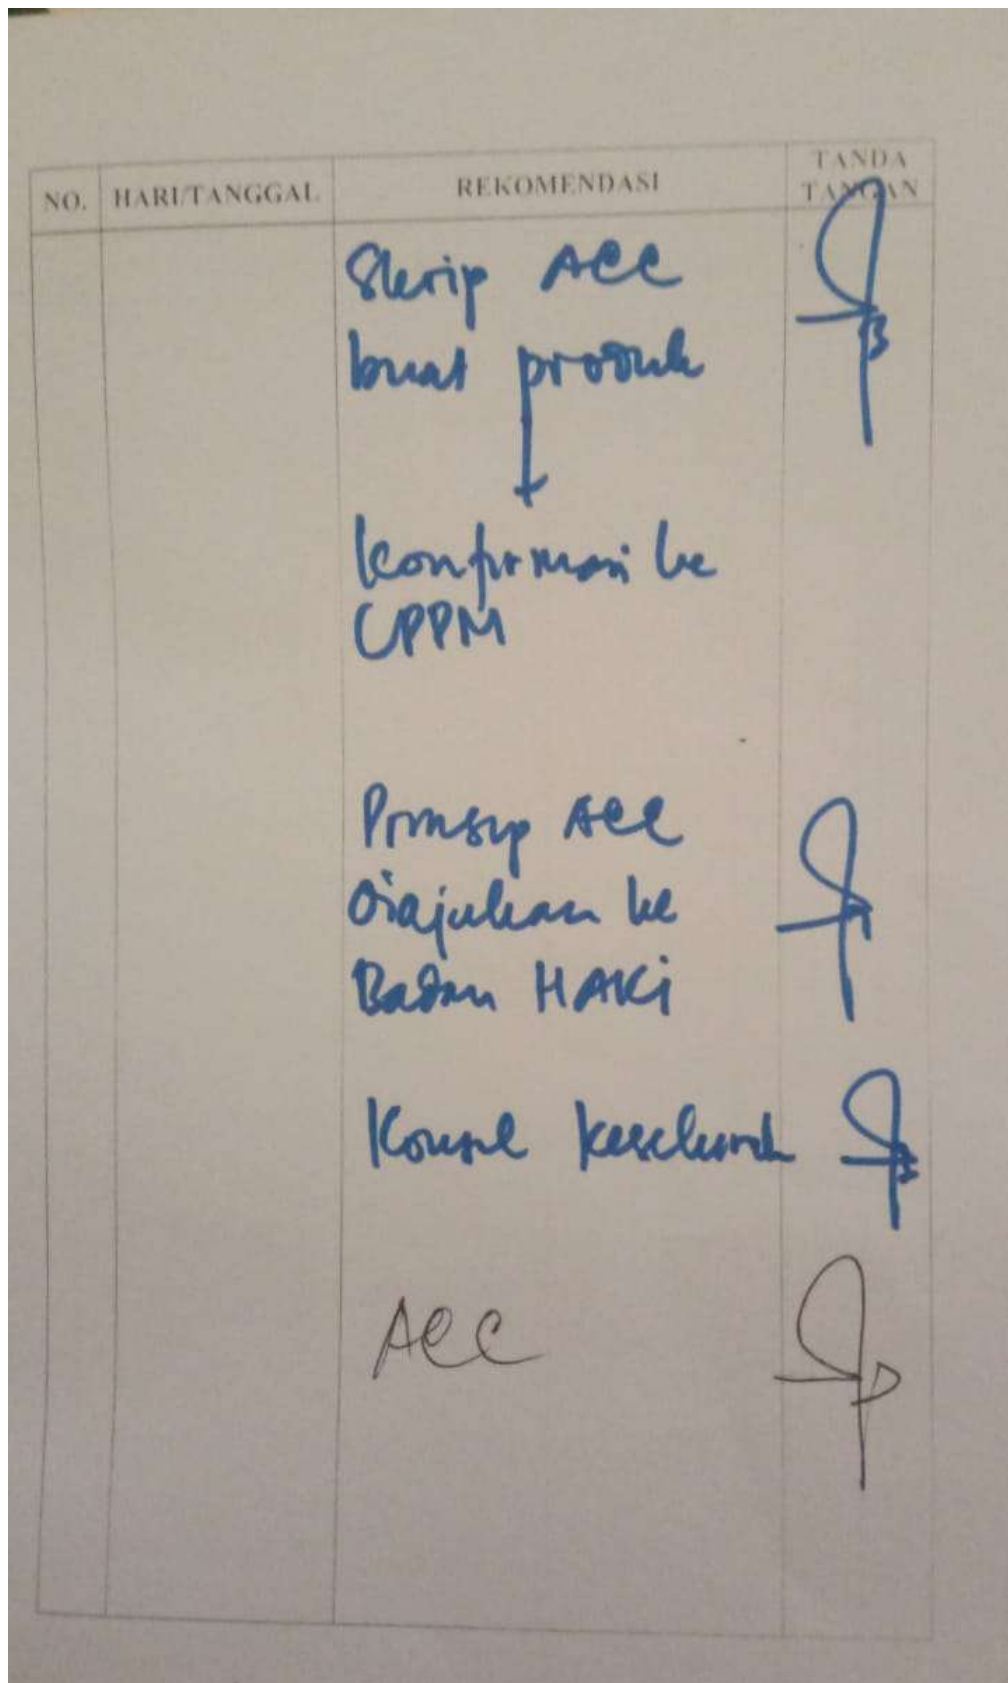 NO.
HARI/TANGGAL
REKOMENDASI
TANDA
TANGAN
Skrip ACC
buat produk
Konfirmasi ke
LPPM
Prinsip ACC
diajukan ke
Badan HAKI
Konsul keseluruh
ACC